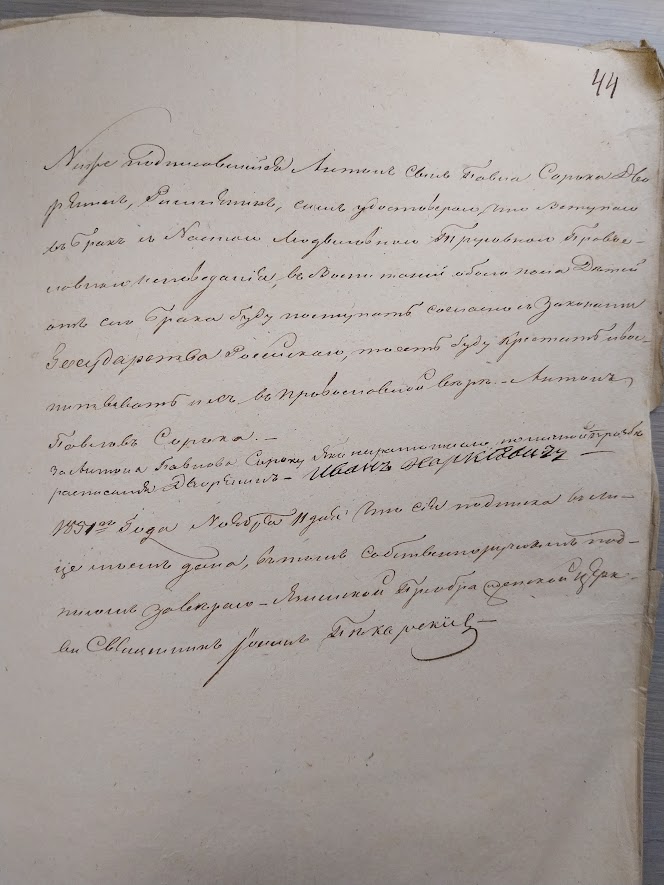 44
Ниже подписавшийся Антонъ Сынъ Павла Сорока Дво-
рянинъ, симъ удостоверяю, что Вступая
въ Бракъ съ Православ-
наго исповедания, въ Воспитании обоего пола Детей
отъ сего Брака буду поступать согласно съ Законами
Государства Российскаго, то есть буду Крестить и вос-
питывать ихъ въ православной вере. – Антонъ
Павловъ Сорока. –
За Антона Павлова Сороку яко неграмотнаго, по личной прозьбе
расписался Дворянинъ – Иванъ Наркевичъ –
1851го Года Ноября 11 дня что сия подписка
моемъ дана, въ томъ собственноручнымъ под-
писомъ заверяю – Преображенской Церк-
ви Священникъ Пекарский –